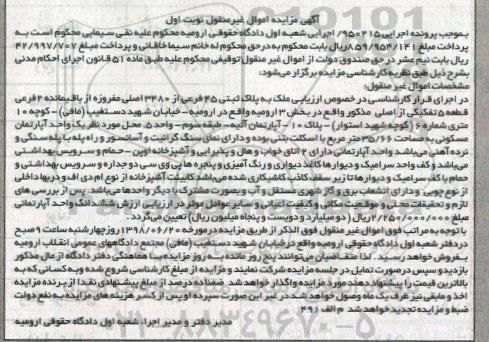 آگهی مزایده اموال غیرمنقول نوبت اول
بموجب پرونده اجرایی ۹۵۰۲۱۵/ اجرایی شعبه اول دادگاه حقوقی ارومیه محکوم علیه نقی سیمایی محکوم است به
پرداخت مبلغ ۸۵۹/۹۵۴/۱۴۱ ریال بابت محکوم به در حق محکوم له خانم سیما خاقانی و پرداخت مبلغ ۴۲/۹۹۷/۷۰۷
ریال بابت نیم عشر در حق صندوق دولت از اموال غیر منقول توقیفی محکوم علیه طبق ماده ۵۱ قانون اجرای احکام مدنی
بشرح ذیل طبق نظریه کارشناسی مزایده برگزار می‌شود:
مشخصات اموال غیر منقول:
در اجرای قرار کارشناسی در خصوص ارزیابی ملک به پلاک ثبتی ۴۵ فرعی از ۳۴۸۰ اصلی مفروزه از باقیمانده ۲ فرعی
قطعه ۵ تفکیکی از اصلی مذکور واقع در بخش ۳ ارومیه واقع در ارومیه - خیابان شهید دستغیب (مافی) - کوچه ۱۰
متری شماره ۶ (کوچه شهید استوار) - پلاک ۱۰ - آپارتمان آتیه - طبقه سوم - واحد ۵. محل مورد نظر یک واحد آپارتمان
مسکونی به مساحت ۱۳۵/۶۶ متر مربع با اسکلت بتنی بوده و دارای نمای سنگ گرانیت و آسانسور و راه پله با پله سنگی و
نرده آهنی می‌باشد. واحد آپارتمانی دارای ۲ اتاق خواب و هال و پذیرایی و آشپزخانه اوپن - حمام و سرویس بهداشتی
می‌باشد و کف واحد سرامیک و دیوارها کاغذ دیواری و رنگ آمیزی و پنجره ها پی وی سی دو جداره و سرویس بهداشتی و
حمام با کف سرامیک و دیوارها تا زیر سقف کاشی کاشیکاری شده می‌باشد کابینت آشپزخانه از نوع ام دی اف و دربها داخلی
از نوع چوبی و دارای انشعاب برق و گاز شهری مستقل و آب و بصورت مشترک با دیگر واحدها می‌باشد. پس از بررسی های
لازم و تحقیقات محلی و موقعیت مکانی و کیفیت اعیانی و سایر عوامل موثر در ارزیابی ارزش ششدانگ واحد آپارتمانی
مبلغ ۲/۲۵۰/۰۰۰/۰۰۰ ریال (دو میلیارد و دویست و پنجاه میلیون ریال) تعیین می‌گردد.
با توجه به مراتب فوق اموال غیر منقول فوق الذکر از طریق مزایده در مورخه ۱۳۹۸/۰۶/۲۰ روز چهارشنبه ساعت ۹ صبح
در دفتر شعبه اول دادگاه حقوقی ارومیه واقع در خیابان شهید دستغیب (مافی) مجتمع دادگاههای عمومی انقلاب ارومیه
بفروش خواهد رسید. لذا متقاضیان می‌توانند پنج روز مانده به روز مزایده با هماهنگی دفتر دادگاه از مال مذکور
بازدید و سپس در صورت تمایل در جلسه مزایده شرکت نمایند و مزایده از مبلغ کارشناسی شروع شده و به کسانی که به
بالاترین قیمت را پیشنهاد دهند مورد مزایده واگذار خواهد شد. ضمناً ده درصد از مبلغ پیشنهادی نقداً از برنده مزایده
اخذ و مابقی نیز ظرف یک ماه وصول خواهد شد در غیر این صورت سپرده او پس از کسر هزینه های مزایده به نفع دولت
ضبط و مزایده تجدید خواهد شد. م الف ۴۹۱
مدیر دفتر و مدیر اجرا، شعبه اول دادگاه حقوقی ارومیه